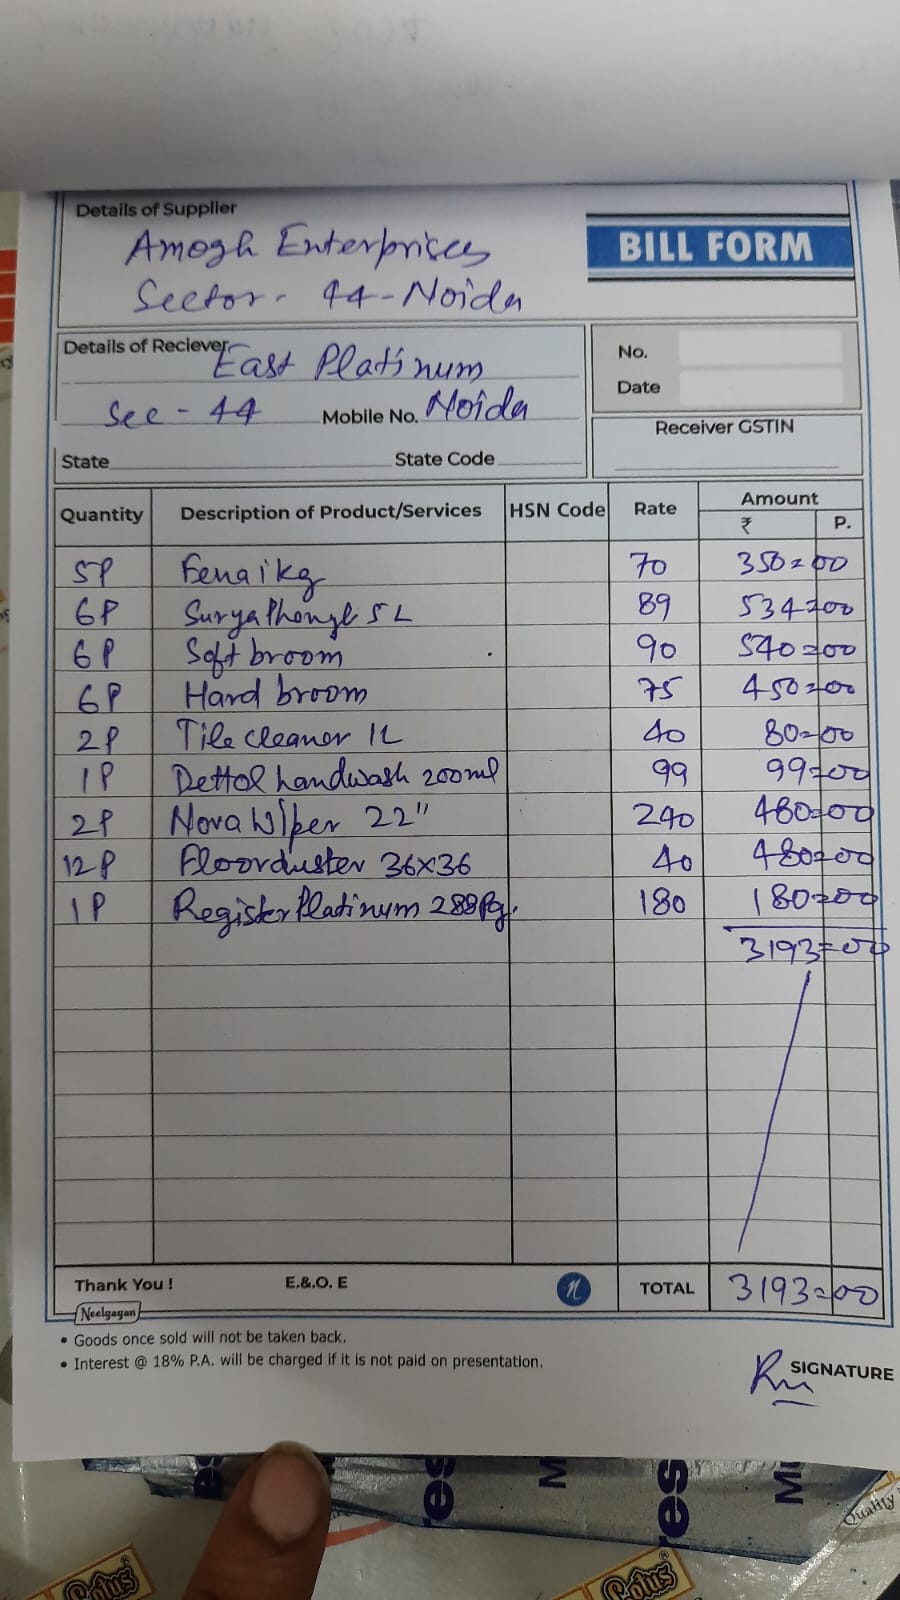 Details of Supplier
Amogh Enterprises
BILL FORM
Sector - 44 - Noida
Details of Reciever
East Platinum
No.
Date
Sec - 44 Mobile No. Noida
Receiver GSTIN
State State Code
Quantity Description of Product/Services HSN Code Rate Amount
₹ P.
5P Fena 1kg 70 350=00
6P Surya Phenyl 5L 89 534=00
6P Soft broom 90 540=00
6P Hard broom 75 450=00
2P Tile cleaner 1L 40 80=00
1P Dettol handwash 200ml 99 99=00
2P Nova Wiper 22" 240 480=00
12P Floorduster 36x36 40 480=00
1P Register Platinum 288Pg. 180 180=00
3193=00
Thank You ! E.&.O. E n TOTAL 3193=00
Neelgagan
• Goods once sold will not be taken back.
• Interest @ 18% P.A. will be charged if it is not paid on presentation.
SIGNATURE
es
M
res
Mu
Quality
Lotus
Lotus